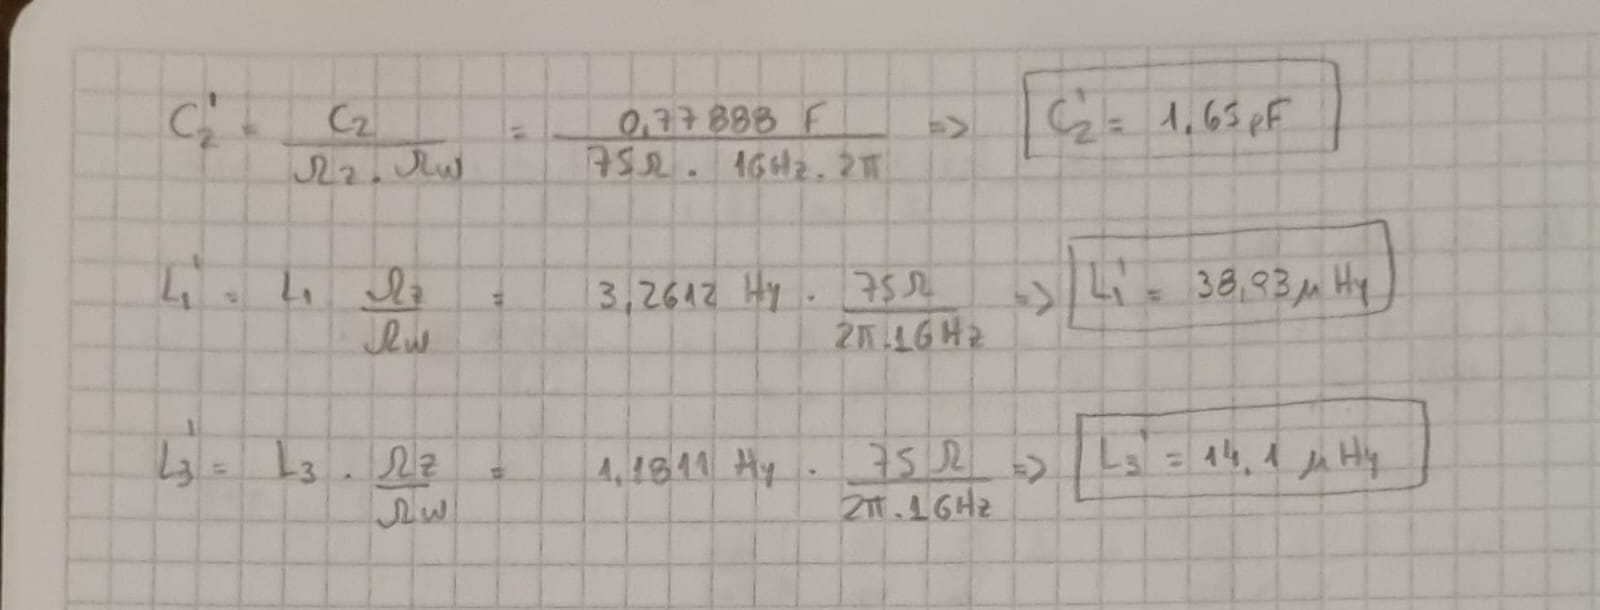 C₂' = C₂ / (Ωz . Ωw) = 0,77888 F / (75Ω . 1GHz . 2π) => C₂' = 1,65 pF
L₁' = L₁ Ωz / Ωw = 3,2612 Hy . 75Ω / (2π.1GHz) => L₁' = 38,93 μHy
L₃' = L₃ . Ωz / Ωw = 1,1811 Hy . 75Ω / (2π.1GHz) => L₃' = 14,1 μHy